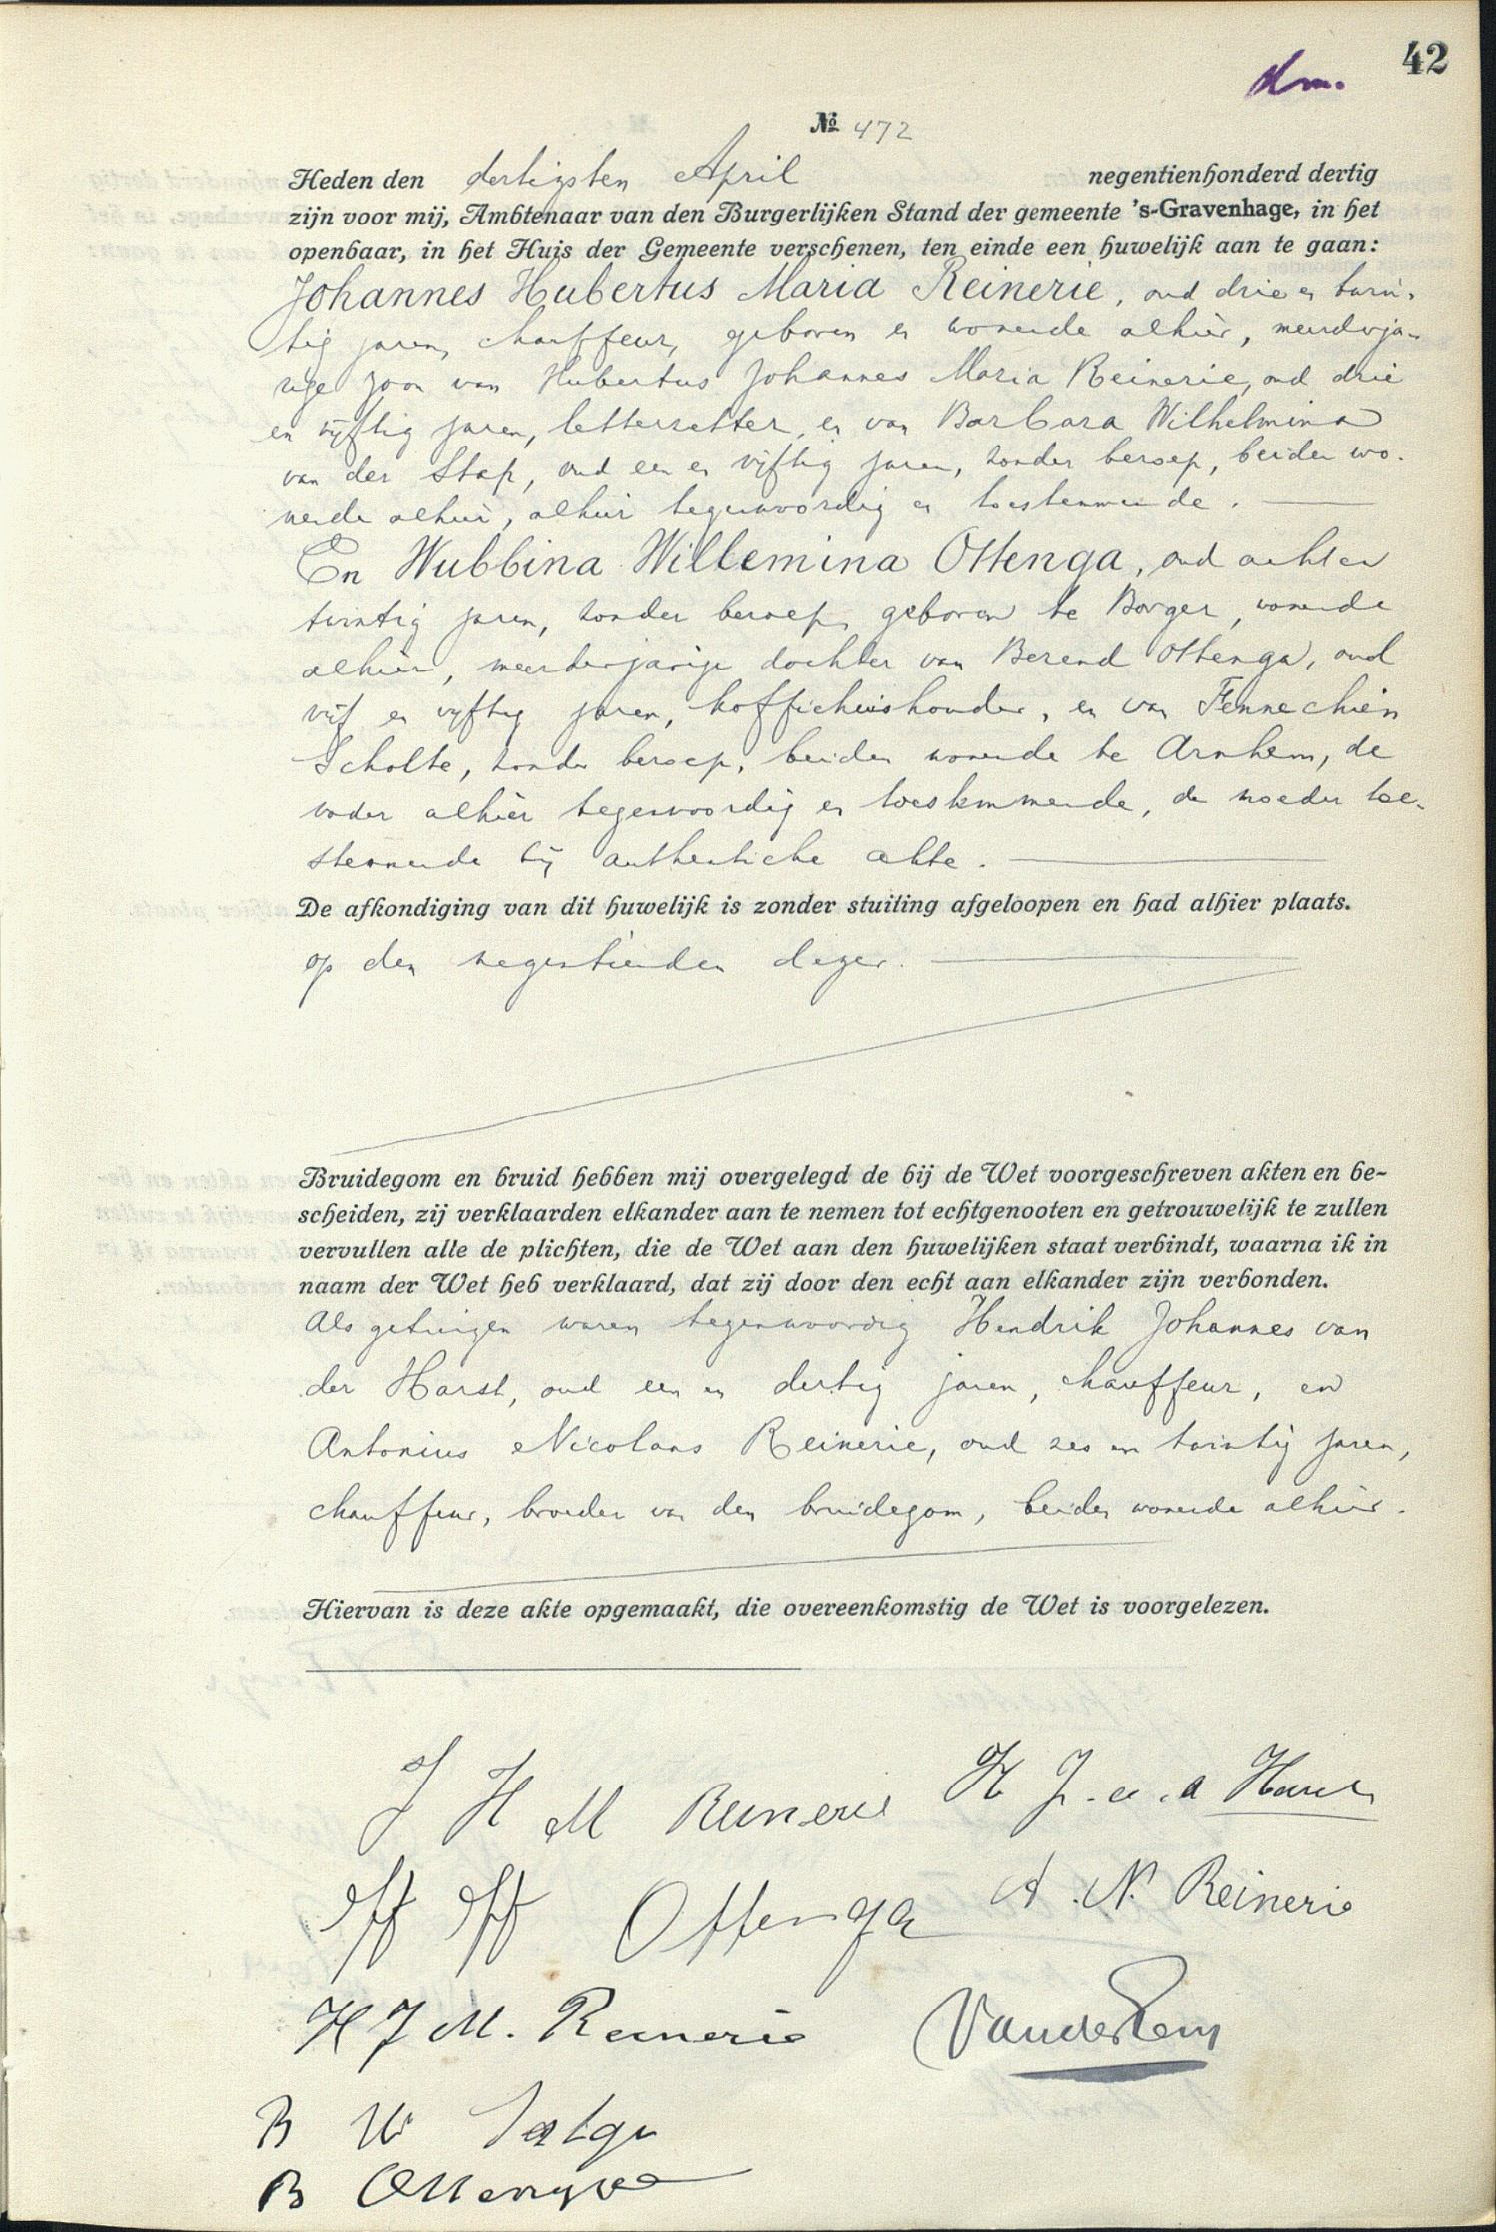 42
dm.
№ 472
Heden den dertigsten April negentienhonderd dertig
zijn voor mij, Ambtenaar van den Burgerlijken Stand der gemeente 's-Gravenhage, in het
openbaar, in het Huis der Gemeente verschenen, ten einde een huwelijk aan te gaan:
Johannes Hubertus Maria Reinerie, oud drie en twin-
tig jaren, chauffeur, geboren en wonende alhier, meerderja-
rige zoon van Hubertus Johannes Maria Reinerie, oud drie
en vijftig jaren, letterzetter, en van Barbara Wilhelmina
van der Stap, oud een en vijftig jaren, zonder beroep, beiden wo-
nende alhier, alhier tegenwoordig en toestemmende.
En Wubbina Willemina Ottenga, oud acht en
twintig jaren, zonder beroep, geboren te Borger, wonende
alhier, meerderjarige dochter van Berend Ottenga, oud
vijf en vijftig jaren, koffiehuishouder, en van Fennechien
Scholte, zonder beroep, beiden wonende te Arnhem, de
vader alhier tegenwoordig en toestemmende, de moeder toe-
stemmende bij authentieke akte.
De afkondiging van dit huwelijk is zonder stuiting afgeloopen en had alhier plaats.
op den negentienden dezer.
Bruidegom en bruid hebben mij overgelegd de bij de Wet voorgeschreven akten en be-
scheiden, zij verklaarden elkander aan te nemen tot echtgenooten en getrouwelijk te zullen
vervullen alle de plichten, die de Wet aan den huwelijken staat verbindt, waarna ik in
naam der Wet heb verklaard, dat zij door den echt aan elkander zijn verbonden.
Als getuigen waren tegenwoordig Hendrik Johannes van
der Harst, oud een en dertig jaren, chauffeur, en
Antonius Nicolaas Reinerie, oud zes en twintig jaren,
chauffeur, broeder van den bruidegom, beiden wonende alhier.
Hiervan is deze akte opgemaakt, die overeenkomstig de Wet is voorgelezen.
J H M Reinerie H J. v. d Harst
W W Ottenga A. N. Reinerie
H J M. Reinerie
B W
B Ottenga